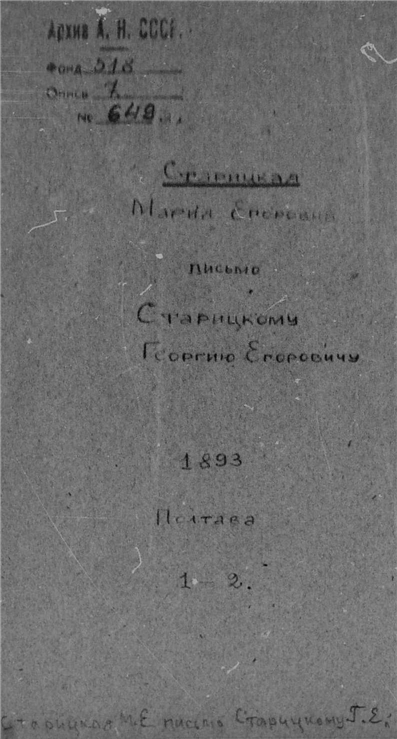 Архив А. Н. СССР.
Фонд 518
Опись 7
№ 649
Старицкая
Мария Егоровна
письмо
Старицкому
Георгию Егоровичу
1893
Полтава
1 – 2.
Старицкая М.Е письмо Старицкому Г.Е.